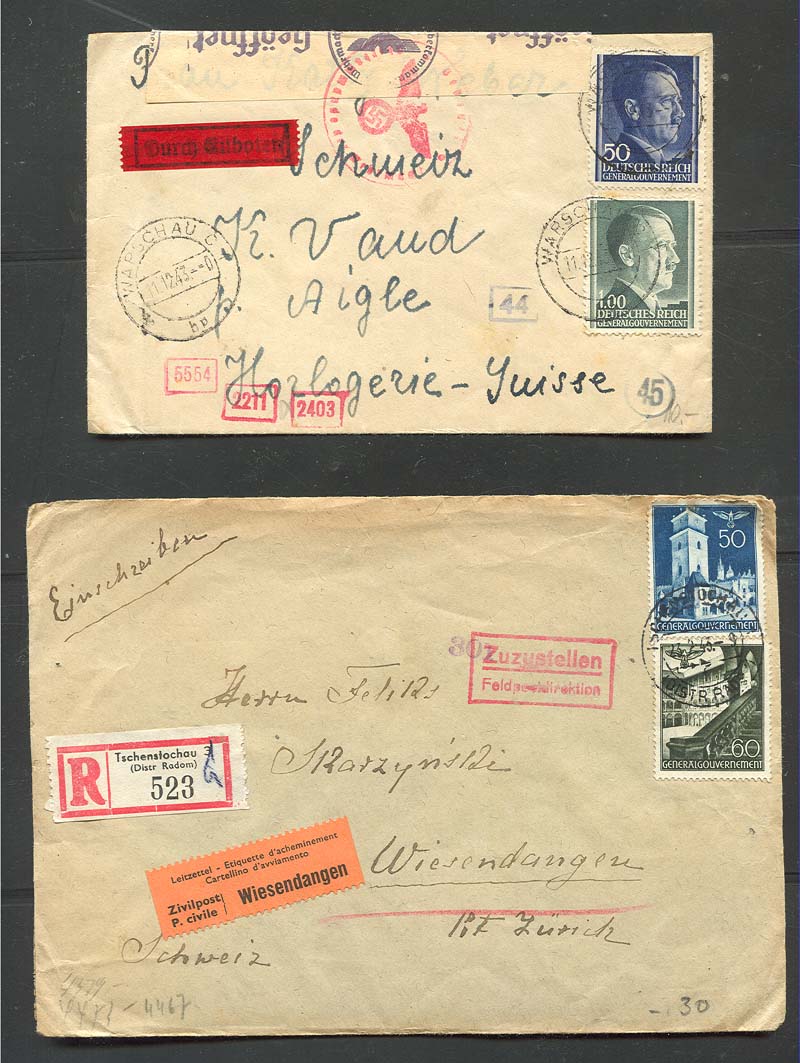 Geöffnet
Geöffnet
Durch Eilboten
Schweiz
K. Vaud
p. Aigle
Horlogerie-Suisse
WARSCHAU C 1
11.12.43.--0
bp
50
DEUTSCHES REICH
GENERALGOUVERNEMENT
WARSCH
1.00
DEUTSCHES REICH
GENERALGOUVERNEMENT
44
5554
2211
2403
45
110.-
Einschreiben
50
GENERALGOUVERNEMENT
60
GENERALGOUVERNEMENT
307
Zuzustellen
Feldpostdirektion
Herrn Feliks
Skarzyński
Wiesendangen
Kt Zürich
Schweiz
R
Tschenstochau 3
(Distr Radom)
523
Leitzettel - Etiquette d'acheminement
Cartellino d'avviamento
Zivilpost
P. civile
Wiesendangen
4467
30